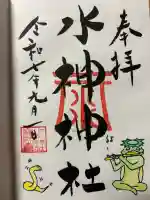 奉拝
水神神社
令和七年九月一日